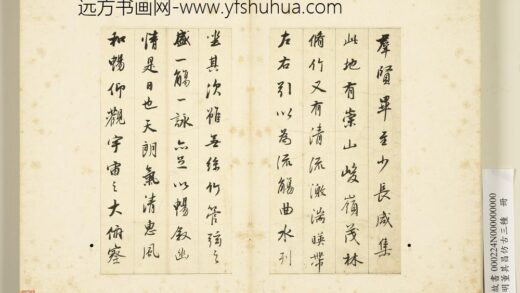 远方书画网-www.yfshuhua.com
羣賢畢至少長咸集
此地有崇山峻嶺茂林
脩竹又有清流激湍暎帶
左右引以為流觴曲水列
坐其次雖無絲竹管弦之
盛一觴一詠亦足以暢敘幽
情是日也天朗氣清惠風
和暢仰觀宇宙之大俯察
故書000224N000000000
明董其昌仿古三種 冊